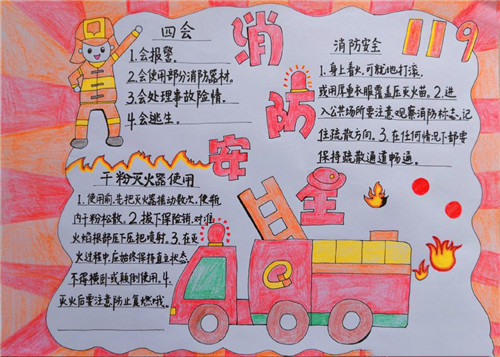 消
防
安
全
119
四会
1.会报警.
2.会使用部分消防器材.
3.会处理事故险情.
4.会逃生.
消防安全
1.身上着火,可就地打滚,
或用厚重衣服覆盖压灭火苗.2.进
入公共场所要注意观察消防标志,记
住疏散方向.3.在任何情况下都要
保持疏散通道畅通.
干粉灭火器使用
1.使用前,先把灭火器摇动数次,使瓶
内干粉松散.2.拔下保险销,对准
火焰根部压下压把喷射.3.在灭
火过程中,应始终保持直立状态,
不得横卧或颠倒使用.4.
灭火后要注意防止复燃哦.